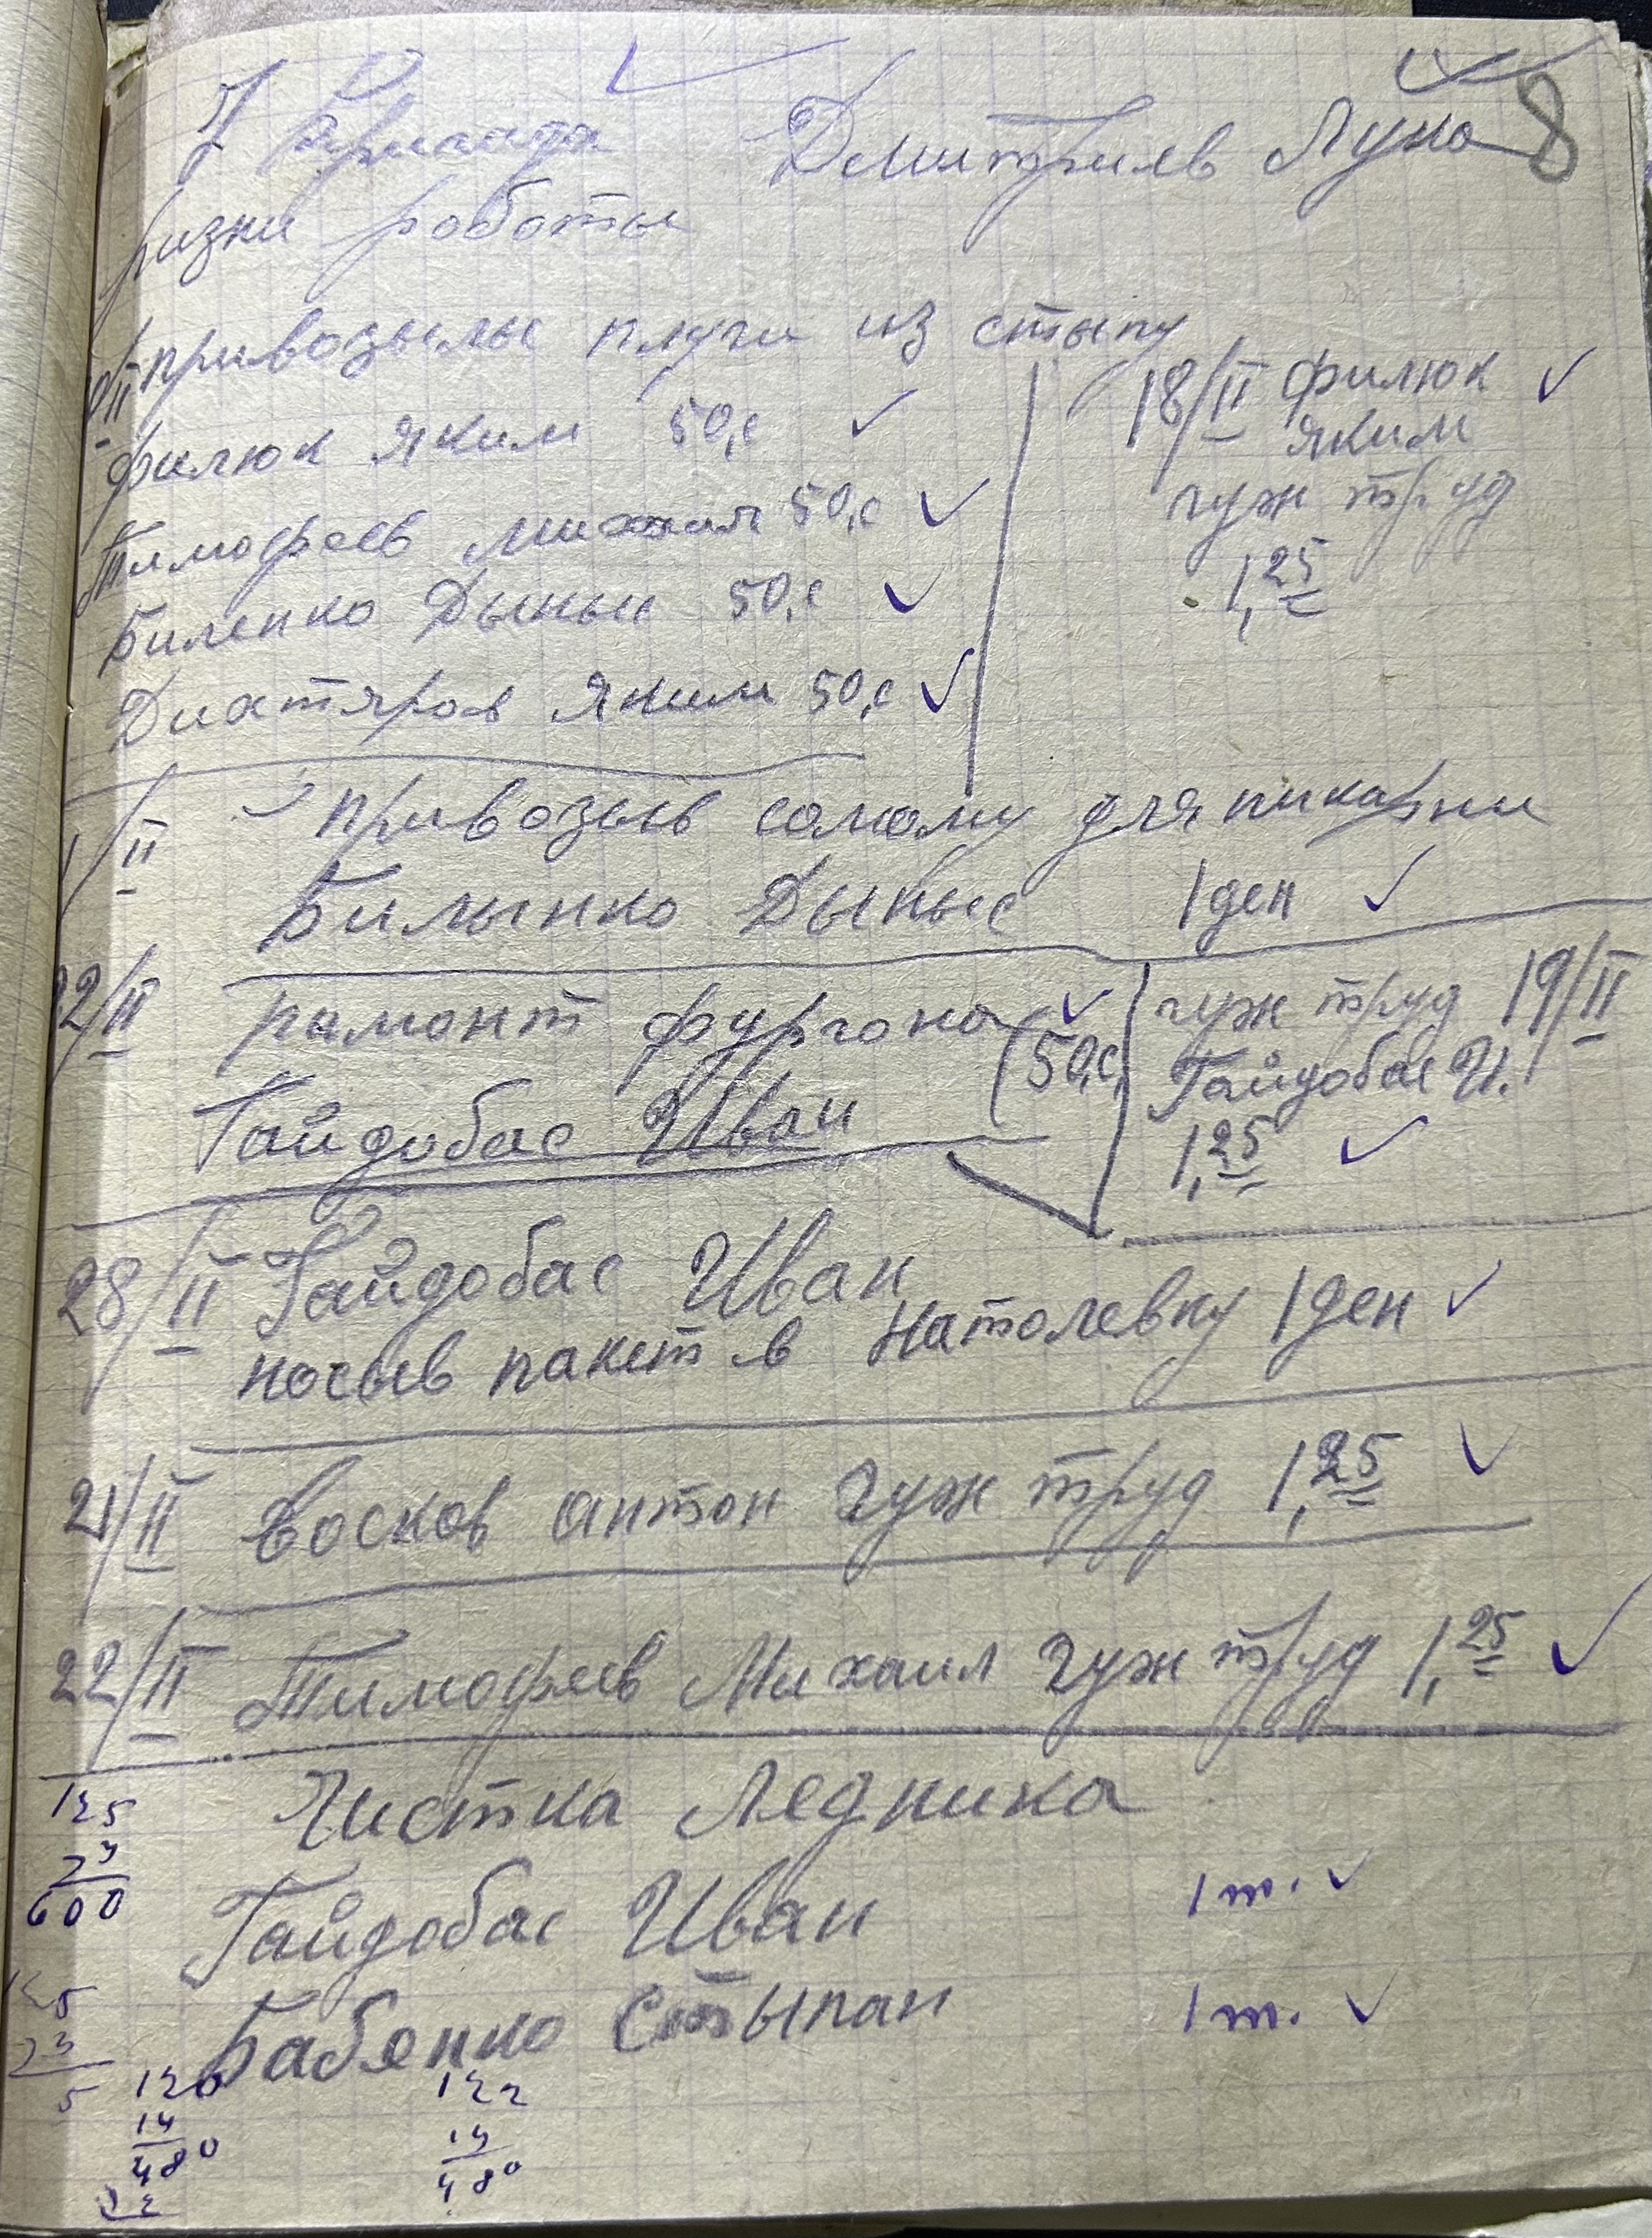 Дмитриев Лука 8
ризни роботы
II привозылы плуги из стыпу
филюк яким 50,с
18/II филюк
яким
гуж труд
1,25
Тимофеев михаил 50,с
Биленко Дыныс 50,с
Дихтяров Яким 50,с
1/II привозыв солому для пикарни
Билынко Дыныс 1 ден
22/II римонт фургона 50,с,
Гайдобас Иван
гуж труд 19/II
Гайдобас И.
1,25
28/II Гайдобас Иван
носыв пакет в Натолевку 1 ден
21/II Восков антон гуж труд 1,25
22/II Тимофеев Михаил гуж труд 1,25
Чистка Ледника
125
600
Гайдобас Иван 1 т.
Бабенко Стыпан 1 т.
120
14
480
122
14
480